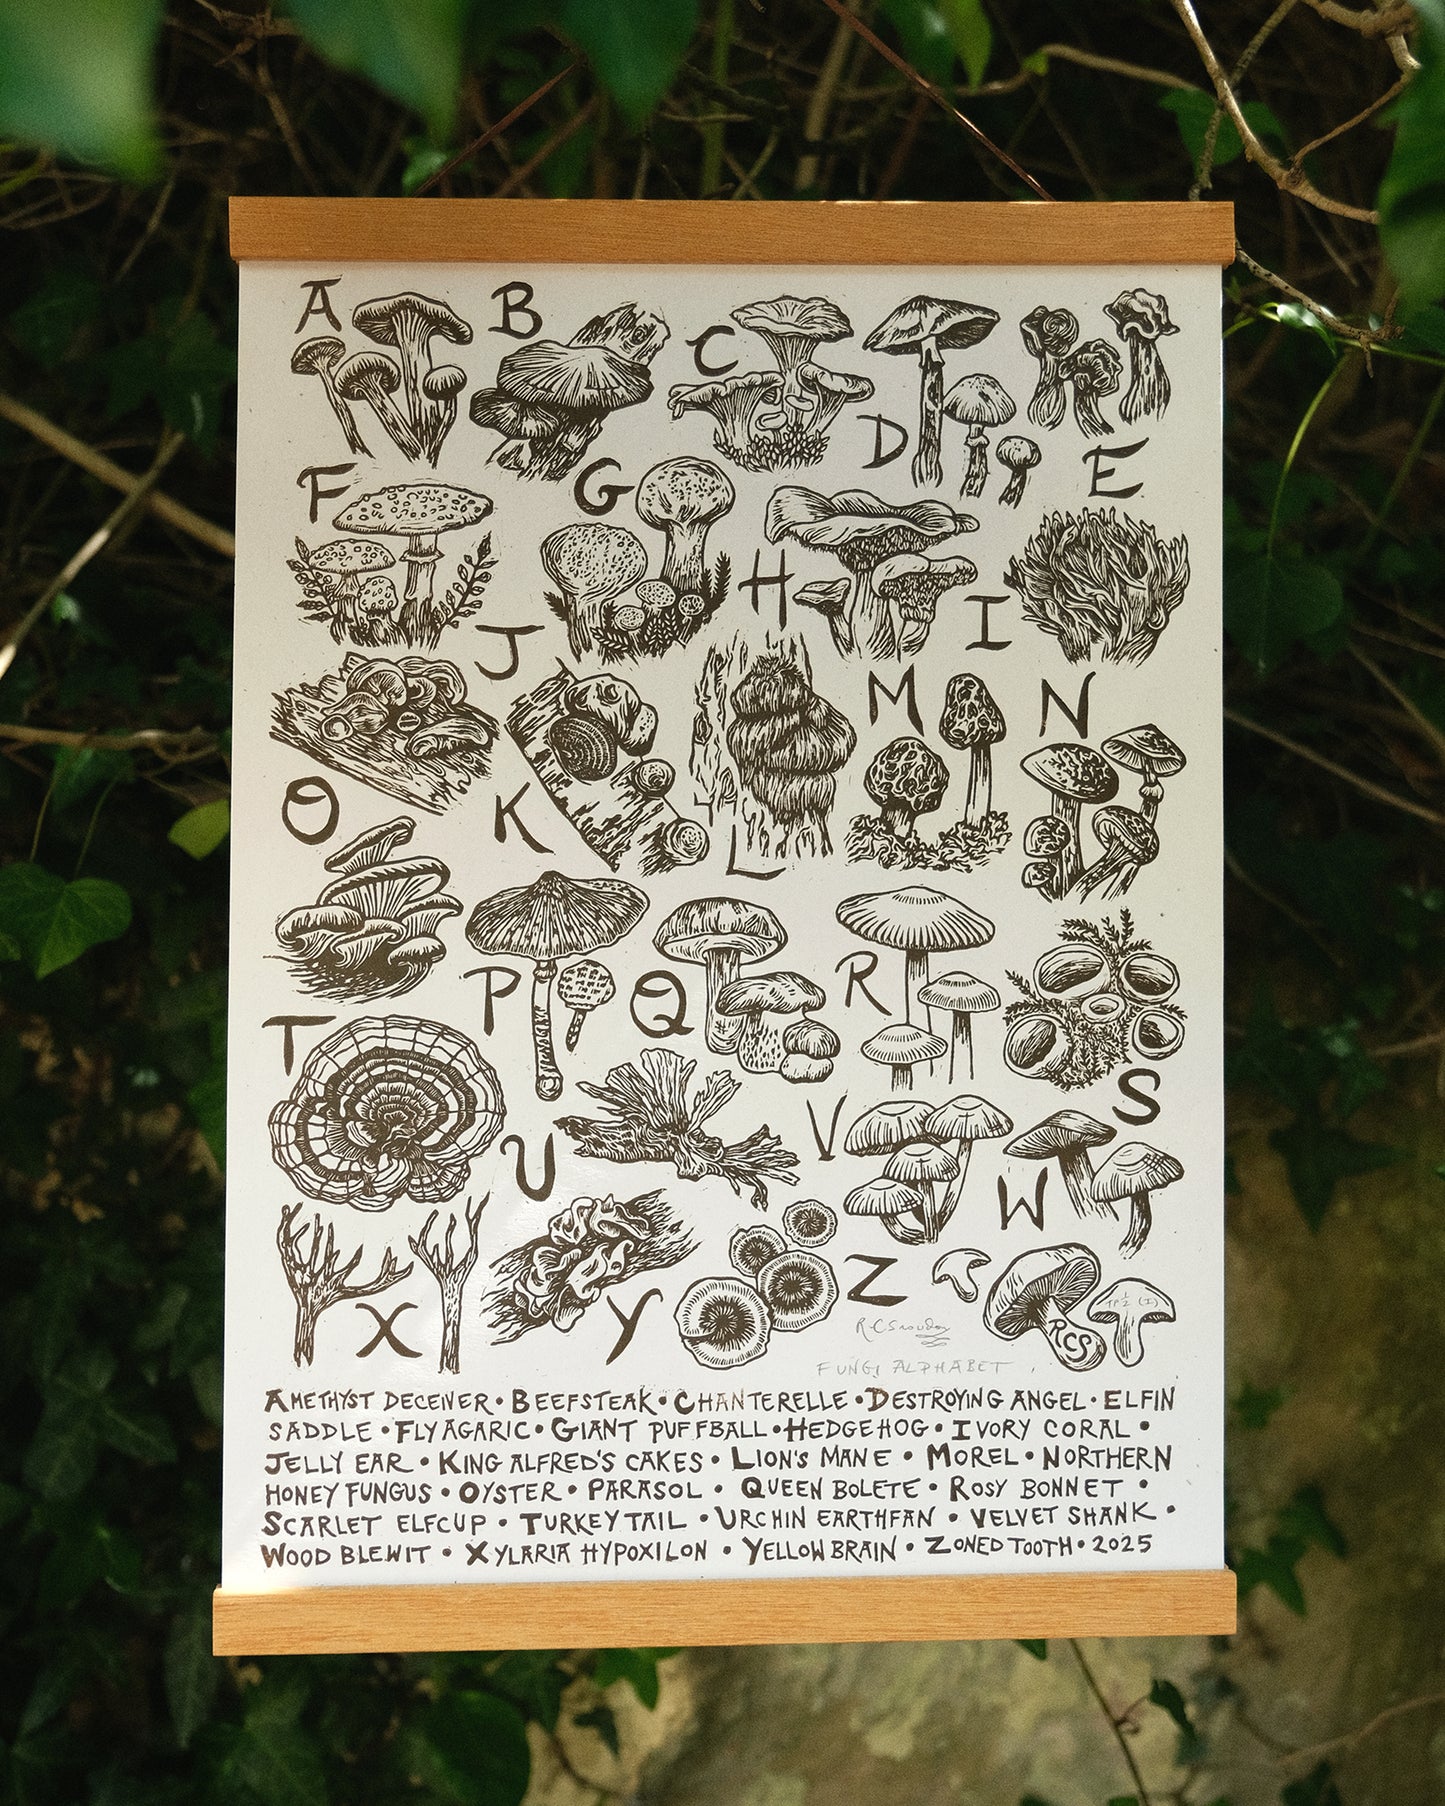 A
B
C
D
E
F
G
H
I
J
K
L
M
N
O
P
Q
R
S
T
U
V
W
X
Y
Z
RCS
R.C Snowdon
FUNGI ALPHABET
AMETHYST DECEIVER • BEEFSTEAK • CHANTERELLE • DESTROYING ANGEL • ELFIN
SADDLE • FLY AGARIC • GIANT PUFFBALL • HEDGEHOG • IVORY CORAL •
JELLY EAR • KING ALFRED'S CAKES • LION'S MANE • MOREL • NORTHERN
HONEY FUNGUS • OYSTER • PARASOL • QUEEN BOLETE • ROSY BONNET •
SCARLET ELFCUP • TURKEY TAIL • URCHIN EARTHFAN • VELVET SHANK •
WOOD BLEWIT • XYLARIA HYPOXILON • YELLOW BRAIN • ZONED TOOTH • 2025